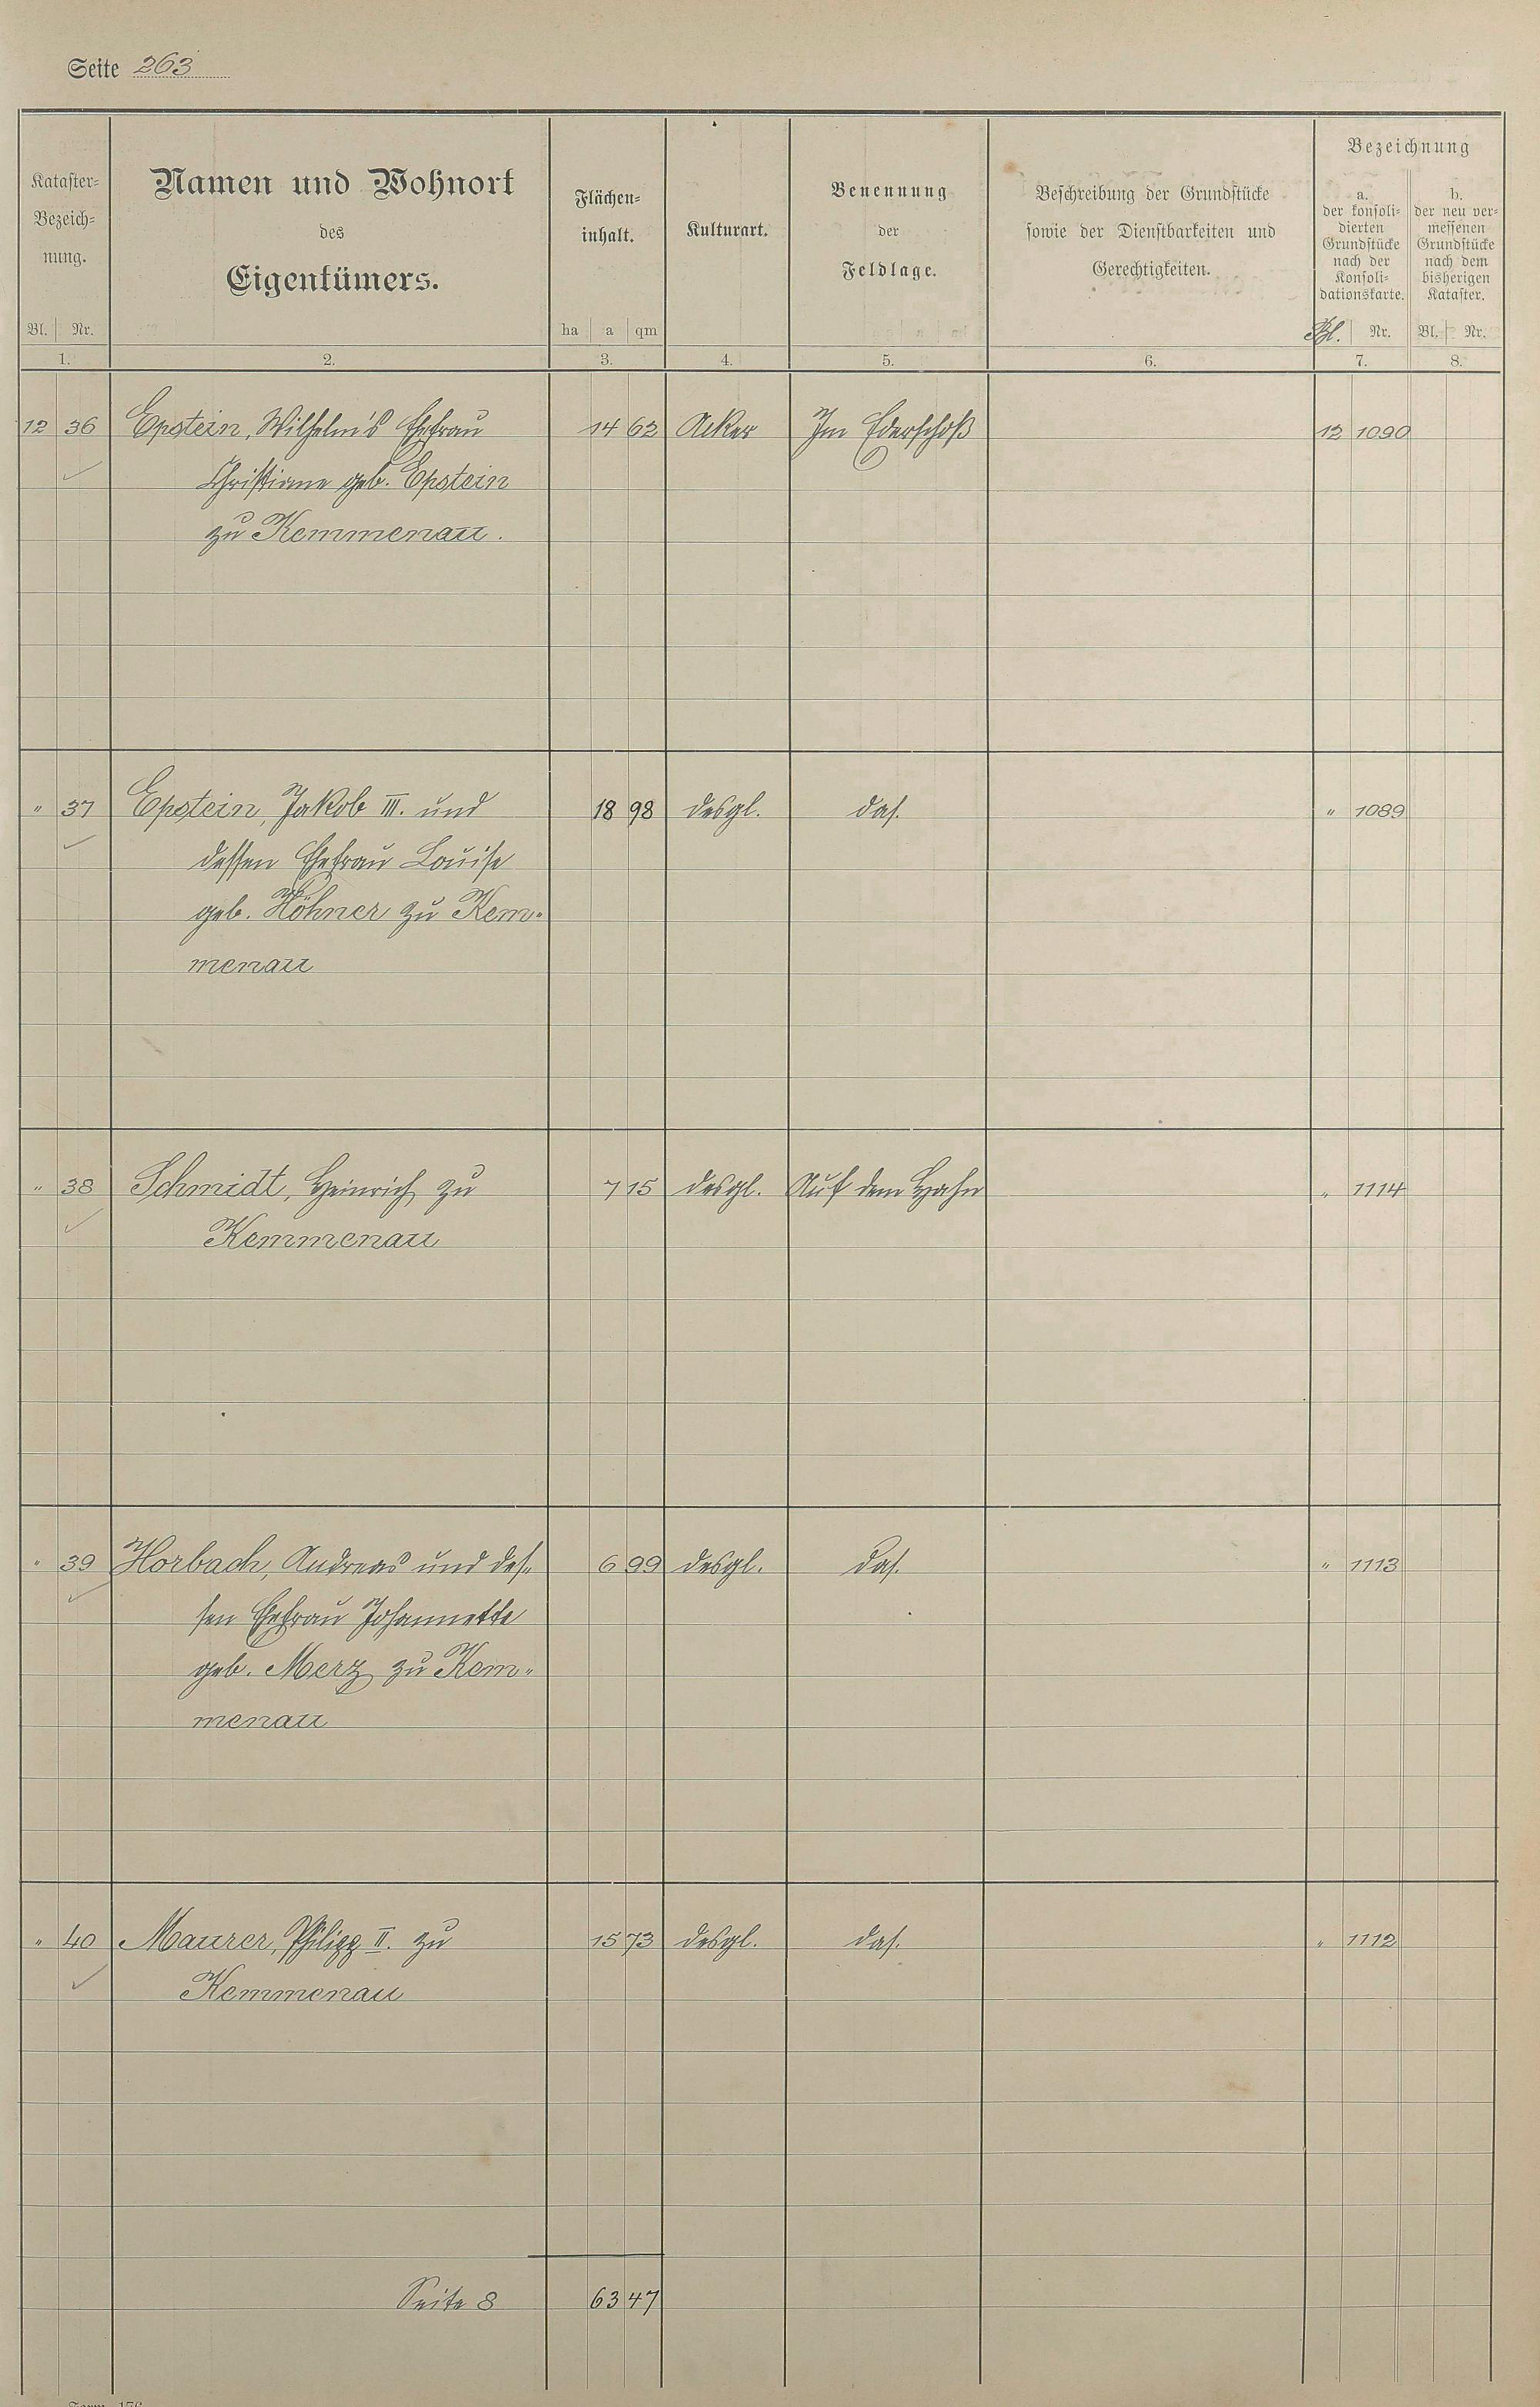 Seite 263
Kataster-
Bezeich-
nung.
Bl. Nr.
1.
Namen und Wohnort
des
Eigentümers.
2.
Flächen-
inhalt.
ha a qm
3.
Kulturart.
4.
Benennung
der
Feldlage.
5.
Beschreibung der Grundstücke
sowie der Dienstbarkeiten und
Gerechtigkeiten.
6.
Bezeichnung
a.
der konsoli-
dierten
Grundstücke
nach der
Konsoli-
dationskarte.
Bl. Nr.
7.
b.
der neu ver-
messenen
Grundstücke
nach dem
bisherigen
Kataster.
Bl. Nr.
8.
12 36 Epstein, Wilhelm's Ehefrau 14 62 Acker Im Ederschoß 12 1090
Christiane geb. Epstein
zu Kemmenau.
" 37 Epstein, Jakob III. und 18 98 desgl. das. " 1089
dessen Ehefrau Louise
geb. Höhner zu Kem-
menau
" 38 Schmidt, Heinrich zu 7 15 desgl. Auf dem Hahn " 1114
Kemmenau
" 39 Horbach, Andreas und des- 6 99 desgl. das. " 1113
sen Ehefrau Johannette
geb. Merz zu Kem-
menau
" 40 Maurer, Philipp II. zu 15 73 desgl. das. " 1112
Kemmenau
Seite 8 63 47
Form. 176